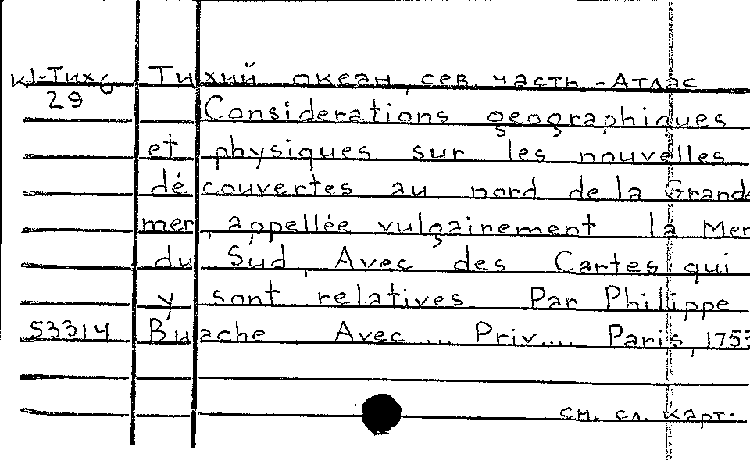 к1-Тих6 Тихий океан, сев. часть - Атлас
29 Considerations geographiques
et physiques sur les nouvelles
découvertes au nord de la Grand
mer, appellée vulgairement la Mer
du Sud, Avec des Cartes qui
y sont relatives Par Philippe
53314 Buache Avec ... Priv.... Paris, 1753
см. сл. карт.